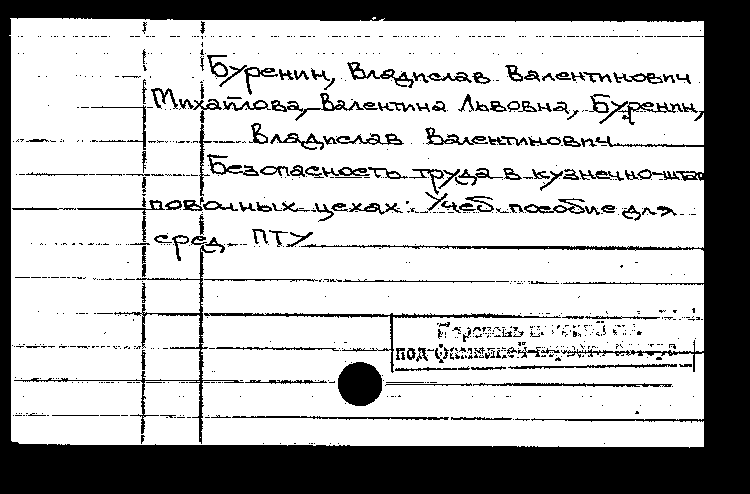 Буренин, Владислав Валентинович
Михайлова, Валентина Львовна, Буренин,
Владислав Валентинович
Безопасность труда в кузнечно-штам
повочных цехах: Учеб. пособие для
сред. ПТУ
под фамилией первого